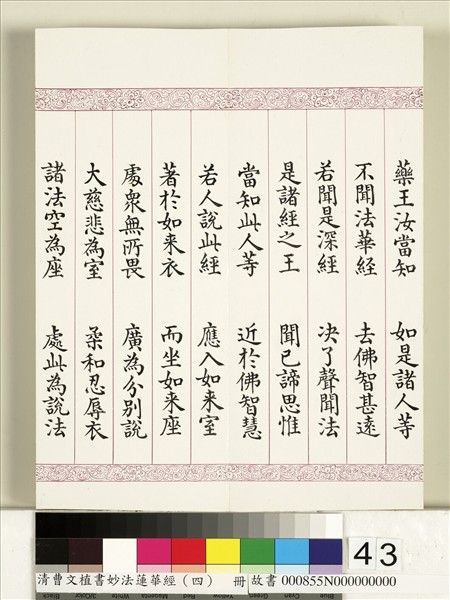 藥王汝當知 如是諸人等
不聞法華經 去佛智甚遠
若聞是深經 决了聲聞法
是諸經之王 聞已諦思惟
當知此人等 近於佛智慧
若人說此經 應入如来室
著於如来衣 而坐如来座
處衆無所畏 廣為分别說
大慈悲為室 柔和忍辱衣
諸法空為座 處此為說法
43
清曹文植書妙法蓮華經(四) 冊 故書 000855N000000000